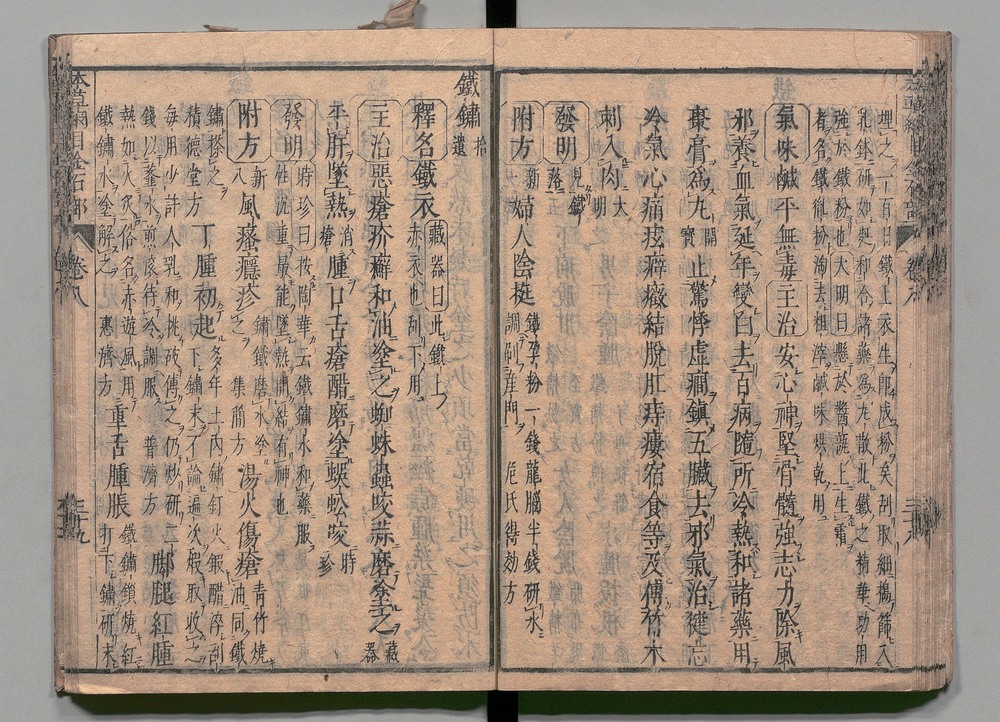 埋之一百日鐵上衣生鐵成粉矣刮取細搗篩入
乳鉢研如麪和合諸藥爲丸散此鐵之精華功用
強於鐵粉也大明曰懸於醬瓿上生霜
者名鐵胤粉淘去粗滓鹹味烘乾用
氣味鹹平無毒主治安心神堅骨髓強志力除風
邪養血氣延年變白去百病隨所冷熱和諸藥用
棗膏爲丸開寶止驚悸虛癇鎮五臟去邪氣治健忘
冷氣心痛痃癖癥結脫肛痔瘻宿食等及傅竹木
刺入肉大明
發明見鐵落
附方新婦人陰挺鐵孕粉一錢龍腦半錢研水
調刷産門危氏得効方
鐵鏽拾遺
釋名鐵衣藏器曰此鐵上
赤衣也刮下用
主治惡瘡疥癬和油塗之蜘蛛蟲咬蒜磨塗之藏器
平肝墜熱消瘡腫口舌瘡醋磨塗蜈蚣咬時珍
發明時珍曰按陶華云鐵鏽水和藥服
性沈重最能墜熱開結有神也
附方新八風瘙癮疹鏽鐵磨水塗
之集簡方湯火傷瘡青竹燒油同鐵
鏽搽之
積德堂方丁腫初起多年土內鏽釘火煅醋淬刮
下鏽末不論遍次煅取收之
每用少許人乳和挑破傅之仍炒研二
錢以虀水煎滾待冷調服普濟方脚腿紅腫
熱如火炙俗名赤遊風用
鐵鏽水塗解之惠濟方重舌腫脹鐵鏽鎖燒紅
打下鏽研末
卷八